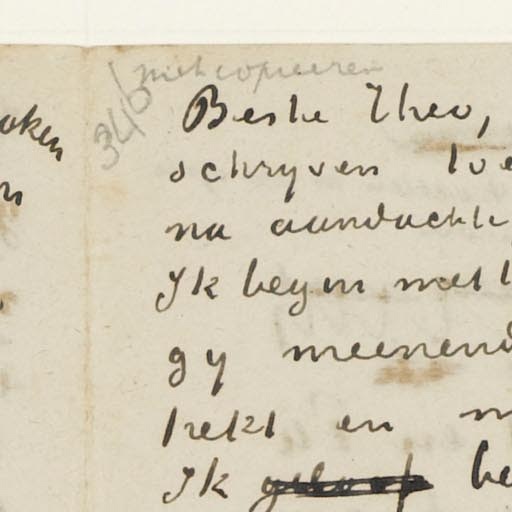 niet copieeren
340
oken
Beste Theo,
schryven
n
na
Ik begin met
gy meenend
trekt en
Ik geloof be